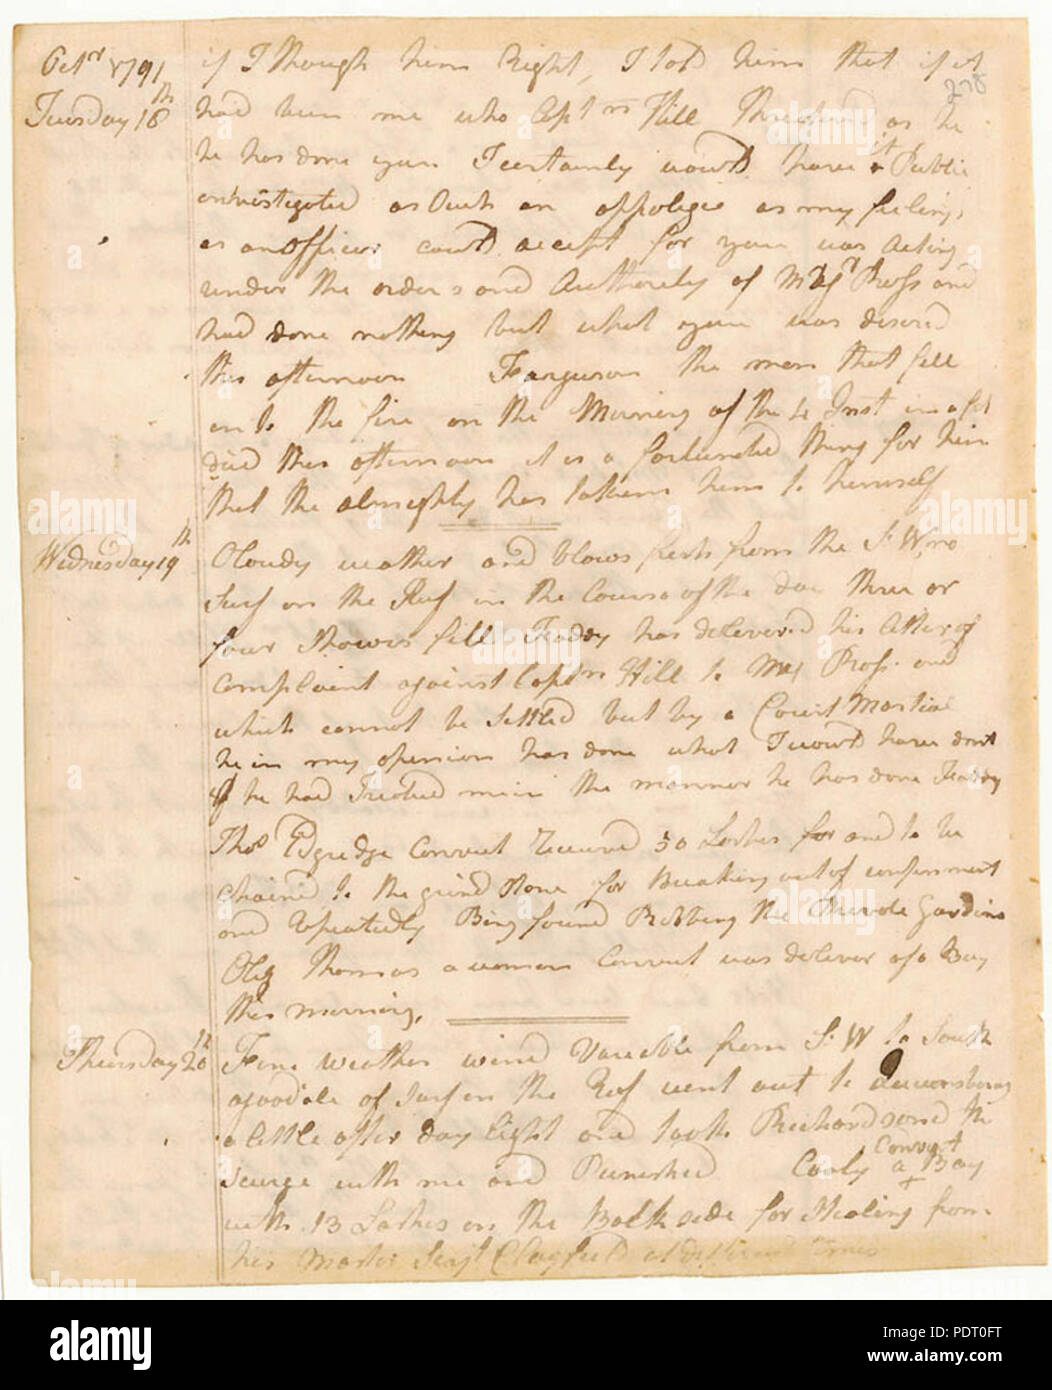 Octr 1791
Tuesday 18th
if I though him Right, I told him that if it
278
had been me who Captn Hill Threatened as he
he has done you I certainly would have it a Public
as Such an appologie as my feelings
as an officer could accept for you was acting
under the orders and Authority of Majr Ross and
had done nothing but what you was desired
this afternoon Farguson the man that fell
into the fire on the Morning of the 4 Inst in a fit
died this afternoon it is a fortunate thing for him
that the almighty has taken him to himself
Wednesday 19th
Cloudy weather and blows fresh from the S W, no
Surf on the Reef in the Course of the day three or
four Showers fell Feaddy has delivered his letter of
Complaint against Captn Hill to Maj Ross. and
which cannot be Settled but by a Court Martial
he in my openion has done what I would have don
if he had Treated me in the manner he has done Feaddy
Thos Edgedge Convict Received 50 Lashes for and to be
chained to the grind Stone for Breaking out of confinment
and repeatedly Bing found Robbing the Private Gardins
Oliz Thomas a woman Convict was deliver of a Boy
this morning,
Thursday 20th
Fine weather wind Variable from S. W to South
a good dale of Surf on the Reef went out to Queensborough
a little after day light and took Richardson and the
Scurge with me and Punished Cooly a Convict Boy
with 13 Lashes on the Back side for Stealing from
his Master Serjt Clayfield at different times
alamy
a
Image ID: PDT0FT
www.alamy.com